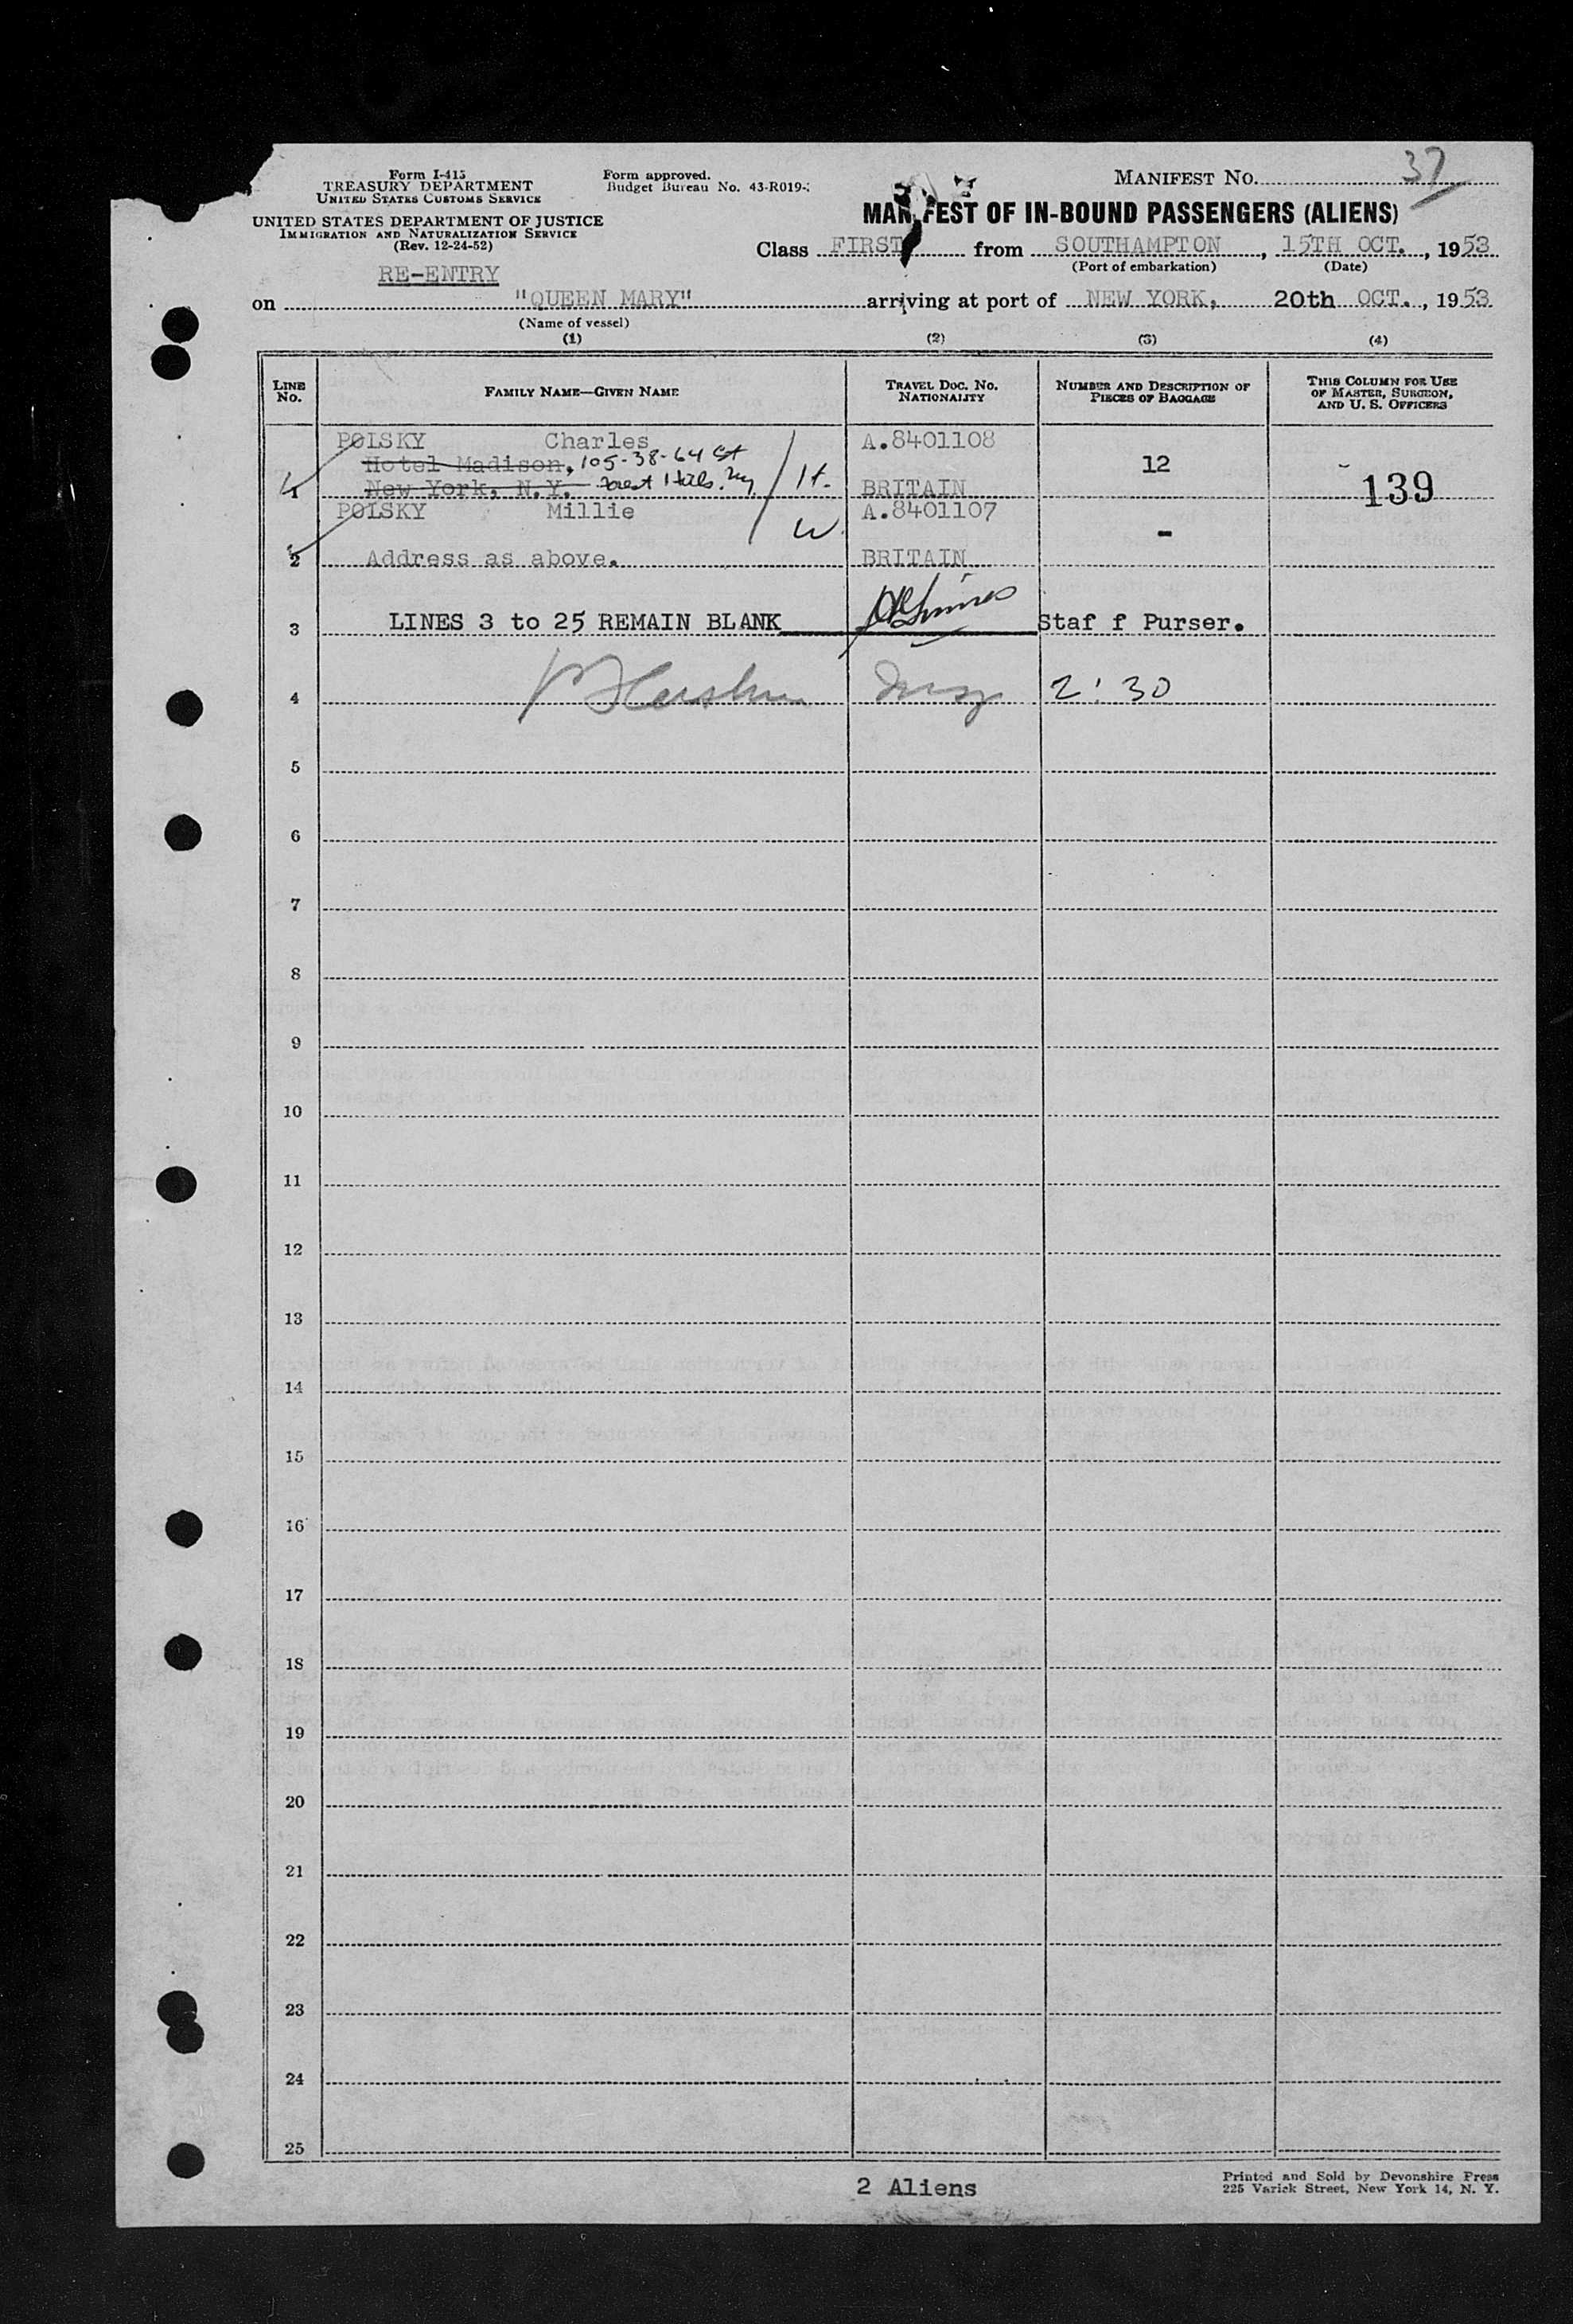 Form I-415
TREASURY DEPARTMENT
UNITED STATES CUSTOMS SERVICE
UNITED STATES DEPARTMENT OF JUSTICE
IMMIGRATION AND NATURALIZATION SERVICE
(Rev. 12-24-52)
Form approved.
Budget Bureau No. 43-R019-
MANIFEST NO. 37
MANIFEST OF IN-BOUND PASSENGERS (ALIENS)
Class FIRST from SOUTHAMPTON, 15TH OCT., 1953
(Port of embarkation) (Date)
RE-ENTRY
on "QUEEN MARY" arriving at port of NEW YORK, 20th OCT., 1953
(Name of vessel)
(1) (2) (3) (4)
LINE NO. FAMILY NAME—GIVEN NAME TRAVEL DOC. NO. NATIONALITY NUMBER AND DESCRIPTION OF PIECES OF BAGGAGE THIS COLUMN FOR USE OF MASTER, SURGEON, AND U. S. OFFICERS
POLSKY Charles A.8401108
Hotel Madison, 105-38-64 St 12
1 New York, N.Y. Forest Hills. Ny H. BRITAIN 139
POLSKY Millie A.8401107
W. -
2 Address as above. BRITAIN
3 LINES 3 to 25 REMAIN BLANK Staf f Purser.
4 2:30
5
6
7
8
9
10
11
12
13
14
15
16
17
18
19
20
21
22
23
24
25
2 Aliens
Printed and Sold by Devonshire Press
225 Varick Street, New York 14, N. Y.